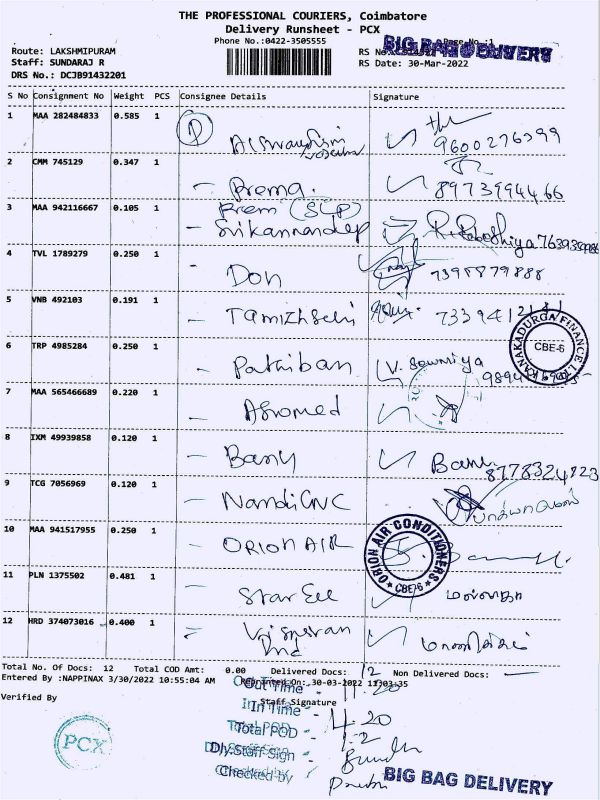 THE PROFESSIONAL COURIERS, Coimbatore
Delivery Runsheet - PCX
Phone No.:0422-3505555
Page No.:1
BIG BAG DELIVERY
Route: LAKSHMIPURAM
RS No.
Staff: SUNDARAJ R
RS Date: 30-Mar-2022
DRS No.: DCJB91432201
S No Consignment No Weight PCS Consignee Details Signature
1 MAA 282484833 0.585 1
9600276399
2 CMM 745129 0.347 1 Prema.
8973994466
3 MAA 942116667 0.105 1 Prem (SLP)
Srikannandep
4 TVL 1789279 0.250 1 Don 7398879888
5 VNB 492103 0.191 1 Tamizhselvi
6 TRP 4985284 0.250 1 Pathiban V. Sowmiya
KANAKADURGA FINANCE LTD
CBE-6
7 MAA 565466689 0.220 1 Afromed
8 IXM 49939858 0.120 1 Banu Banu 8778324823
9 TCG 7056969 0.120 1 Nandi CNC
10 MAA 941517955 0.250 1 ORION AIR
ORION AIR CONDITIONERS
CBE-6
11 PLN 1375502 0.481 1 Star Eee
12 HRD 374073016 0.400 1
Total No. Of Docs: 12 Total COD Amt: 0.00 Delivered Docs: 12 Non Delivered Docs: —
Entered By :NAPPINAX 3/30/2022 10:55:04 AM Reprinted On:.30-03-2022 11:03:35
Verified By
Staff Signature
Out Time - 11.20
In Time - 4.20
Total POD - 12
Dly.Staff Sign -
Checked by
PCX
BIG BAG DELIVERY